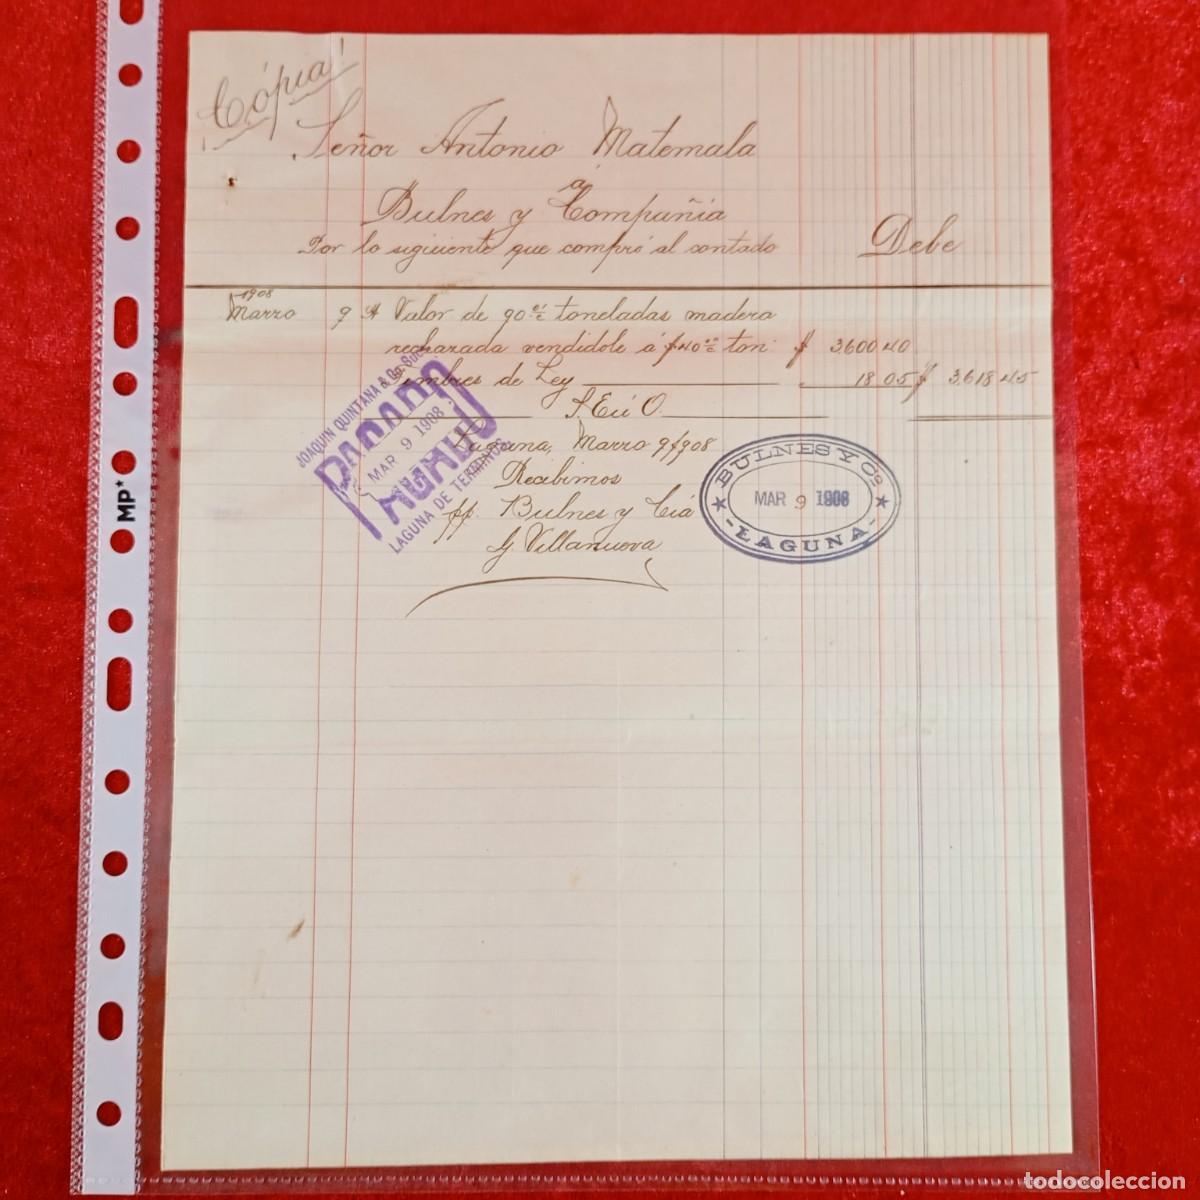 Cópia!
Señor Antonio Matemala
á
Bulnes y Compañia
Por lo siguiente que compró al contado Debe
1908
Marzo 9 Valor de 90 toneladas madera
rechazada vendidole á $40 ton: $ 3,600 40
Timbres de Ley 18 05 $ 3,618 45
S. E. ú O.
Laguna, Marzo 9/908
Recibimos
pp. Bulnes y Cía
G. Villanueva
JOAQUIN QUINTANA & Co. Suc
PAGADO
MAR 9 1908
LAGUNA DE TERMINOS
BULNES Y Co.
MAR 9 1908
LAGUNA
MP*
todocoleccion